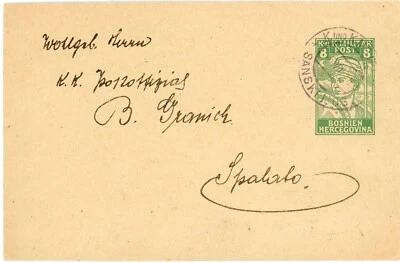 Wohlgeb. Herrn
K.K. Postoffizial
B. Granich
Spalato.
K. UND K. MILITÄR
POST
8 8
BOSNIEN
HERCEGOVINA
K. UND K.
SANSKI